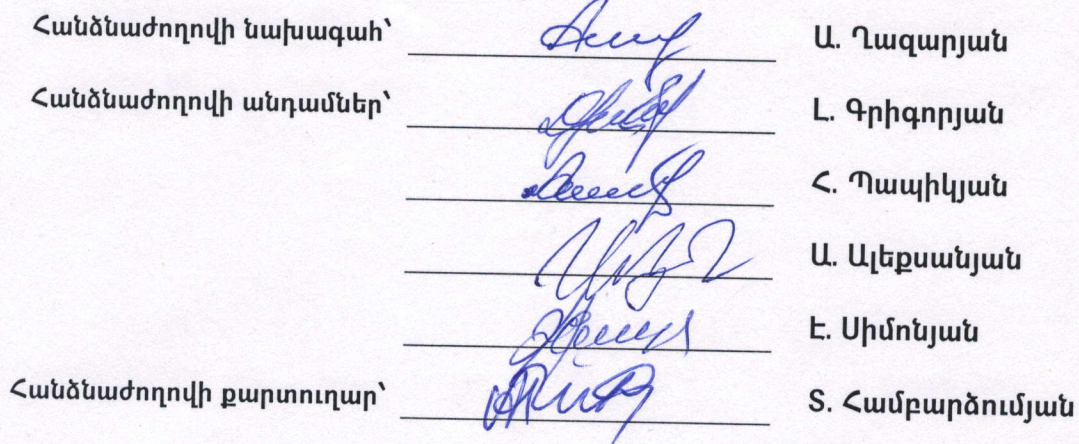 Հանձնաժողովի նախագահ՝ Ա. Ղազարյան
Հանձնաժողովի անդամներ՝ Լ. Գրիգորյան
Հ. Պապիկյան
Ա. Ալեքսանյան
Է. Սիմոնյան
Հանձնաժողովի քարտուղար՝ Տ. Համբարձումյան